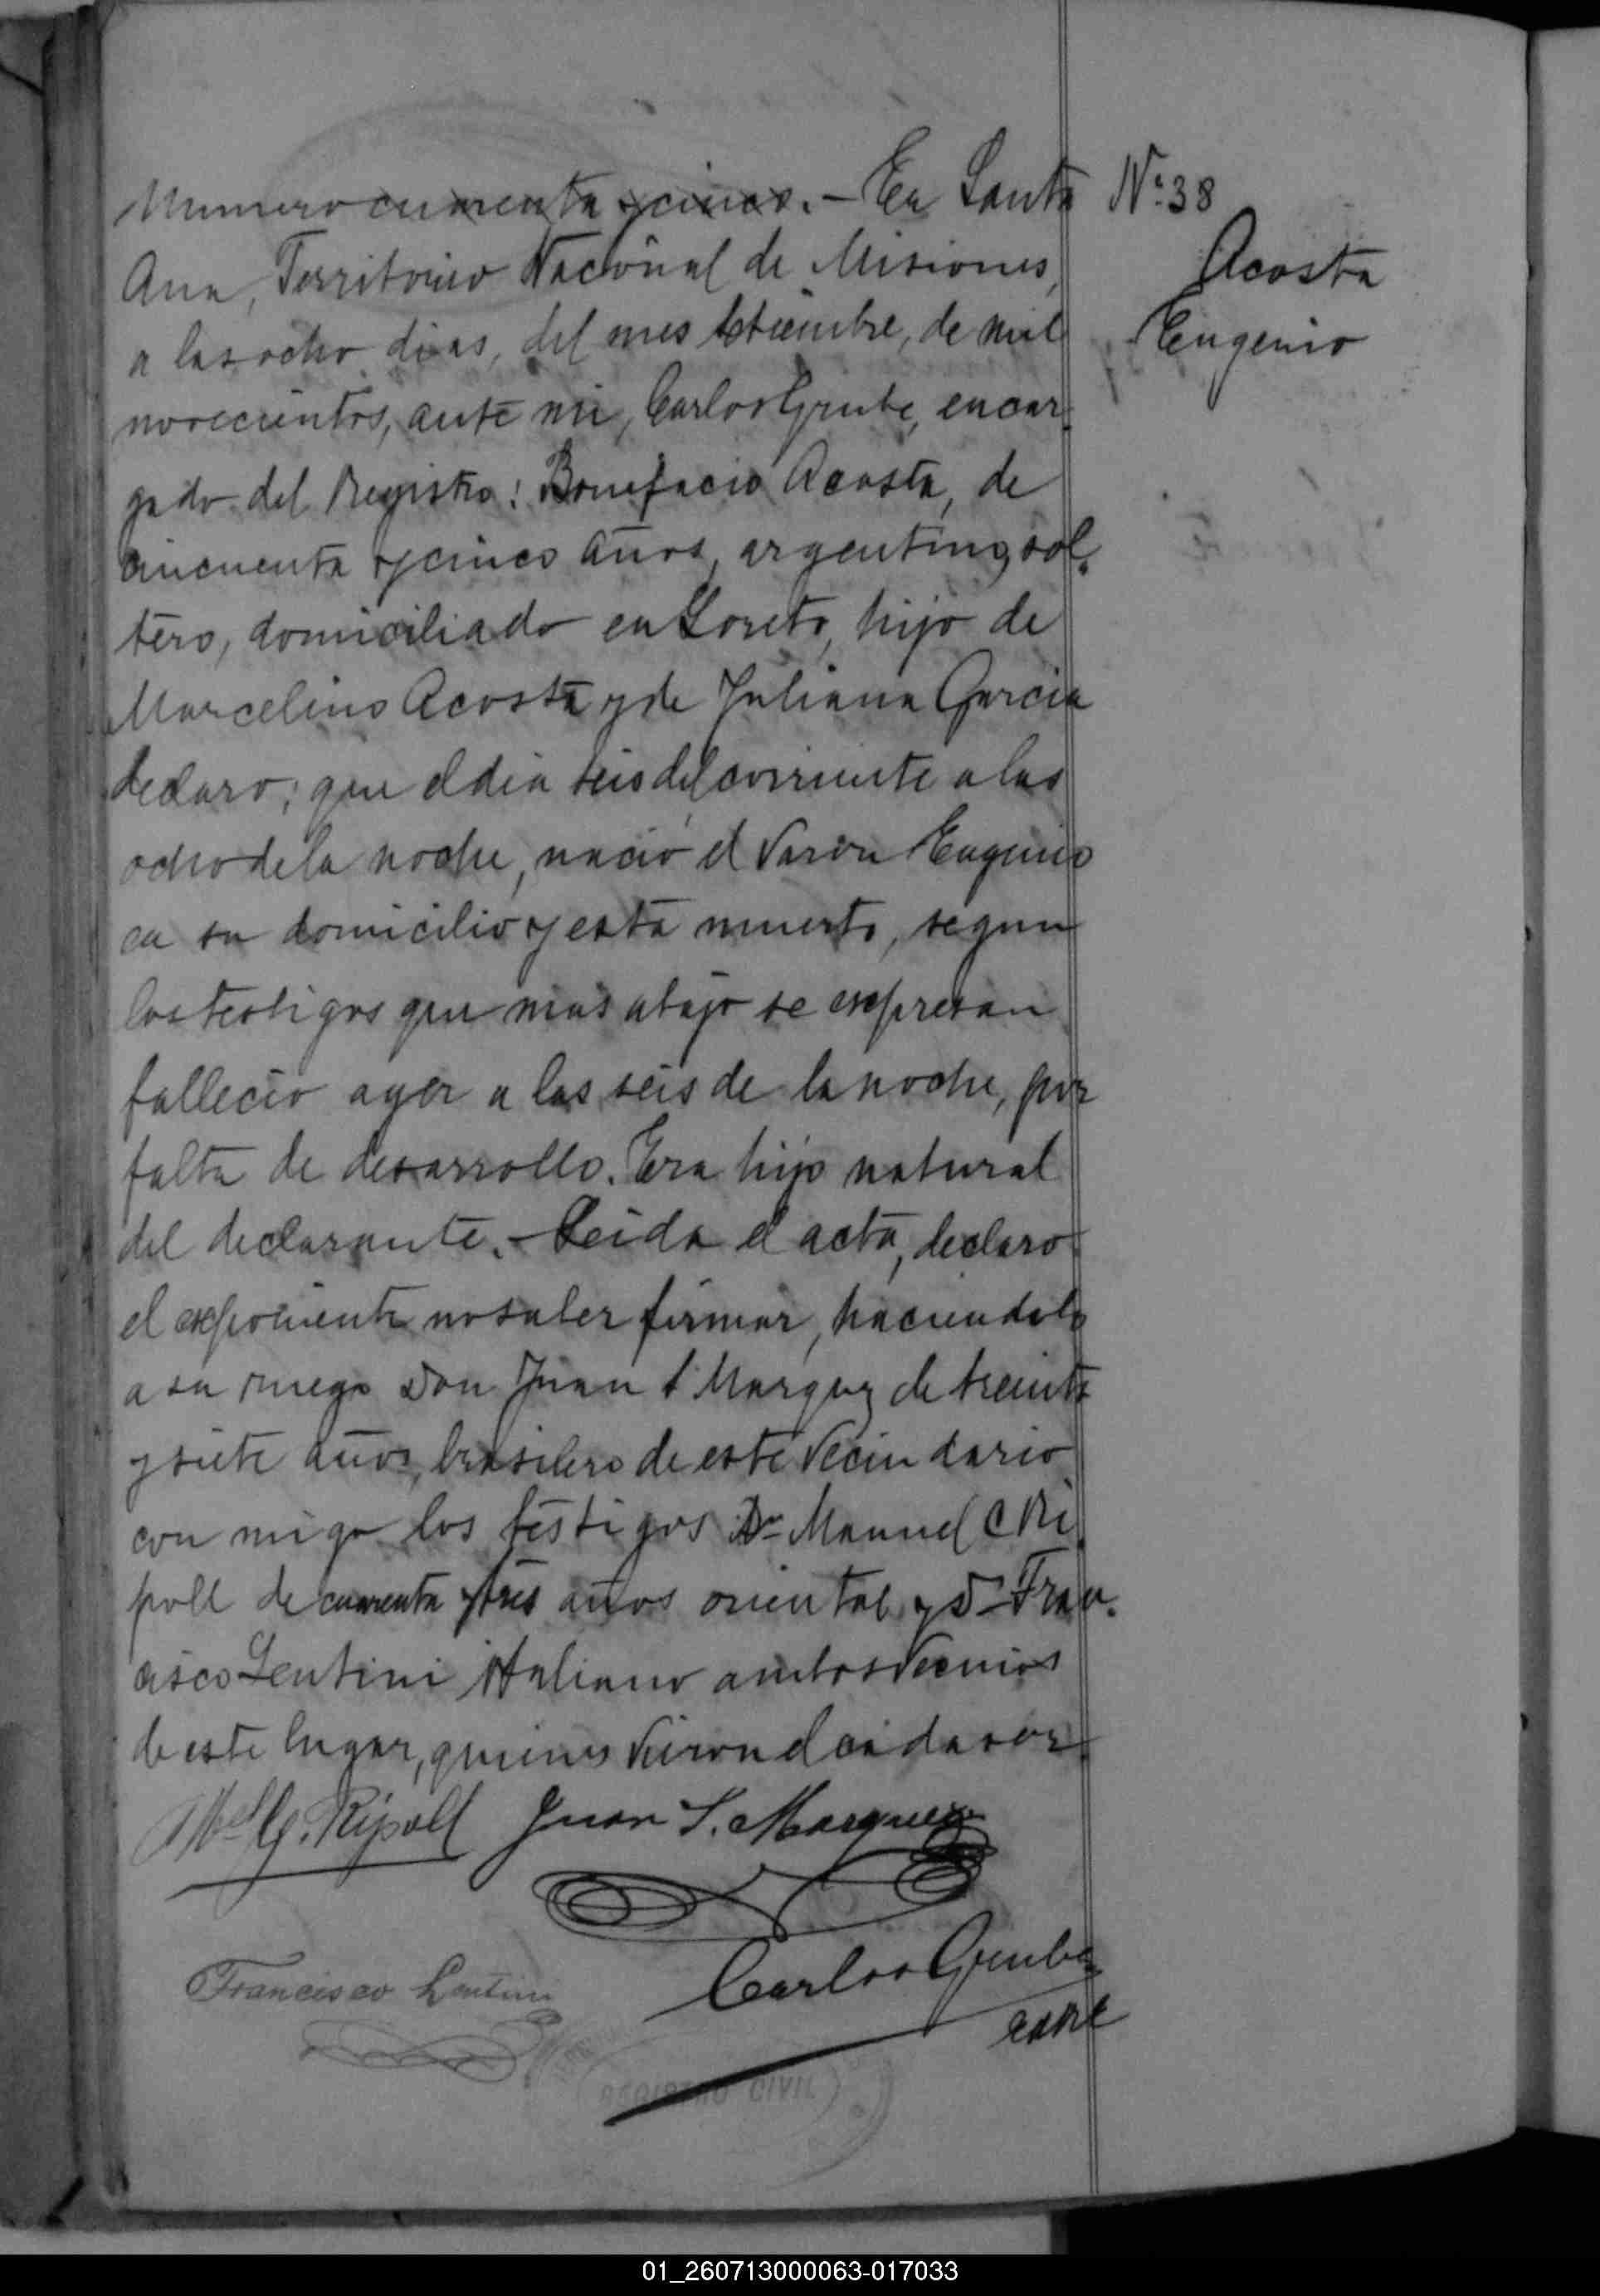 Numero cuarenta y cinco. - En Santa
Ana, Territorio Nacional de Misiones,
a los ocho dias, del mes Setiembre, de mil
novecientos, ante mi, Carlos Grube, encar
gado del Registro: Bonifacio Acosta, de
cincuenta y cinco años, argentino, sol-
tero, domiciliado en Loreto, hijo de
Marcelino Acosta y de Juliana Garcia
declaro; que el dia seis del corriente a las
ocho de la noche, nació el varon Eugenio
en su domicilio y esta muerto, segun
los testigos que mas abajo se expresan
fallecio ayer a las seis de la noche, por
falta de desarrollo. Era hijo natural
del declarante. - Leida el acta, declaro
el exponente no saber firmar, haciendolo
a su ruego Don Juan S Marquez de treinta
y siete años, brasilero de este vecindario
con migo los testigos Dn Manuel C Ri
poll de cuarenta y tres años oriental y Dn Fran-
cisco Lentini italiano ambos vecinos
de este lugar, quienes vieron el cadaver
Ml C. Ripoll Juan S. Marquez
Francisco Lentini
Carlos Grube
REGISTRO CIVIL
Nº 38
Acosta
Eugenio
01_260713000063-017033